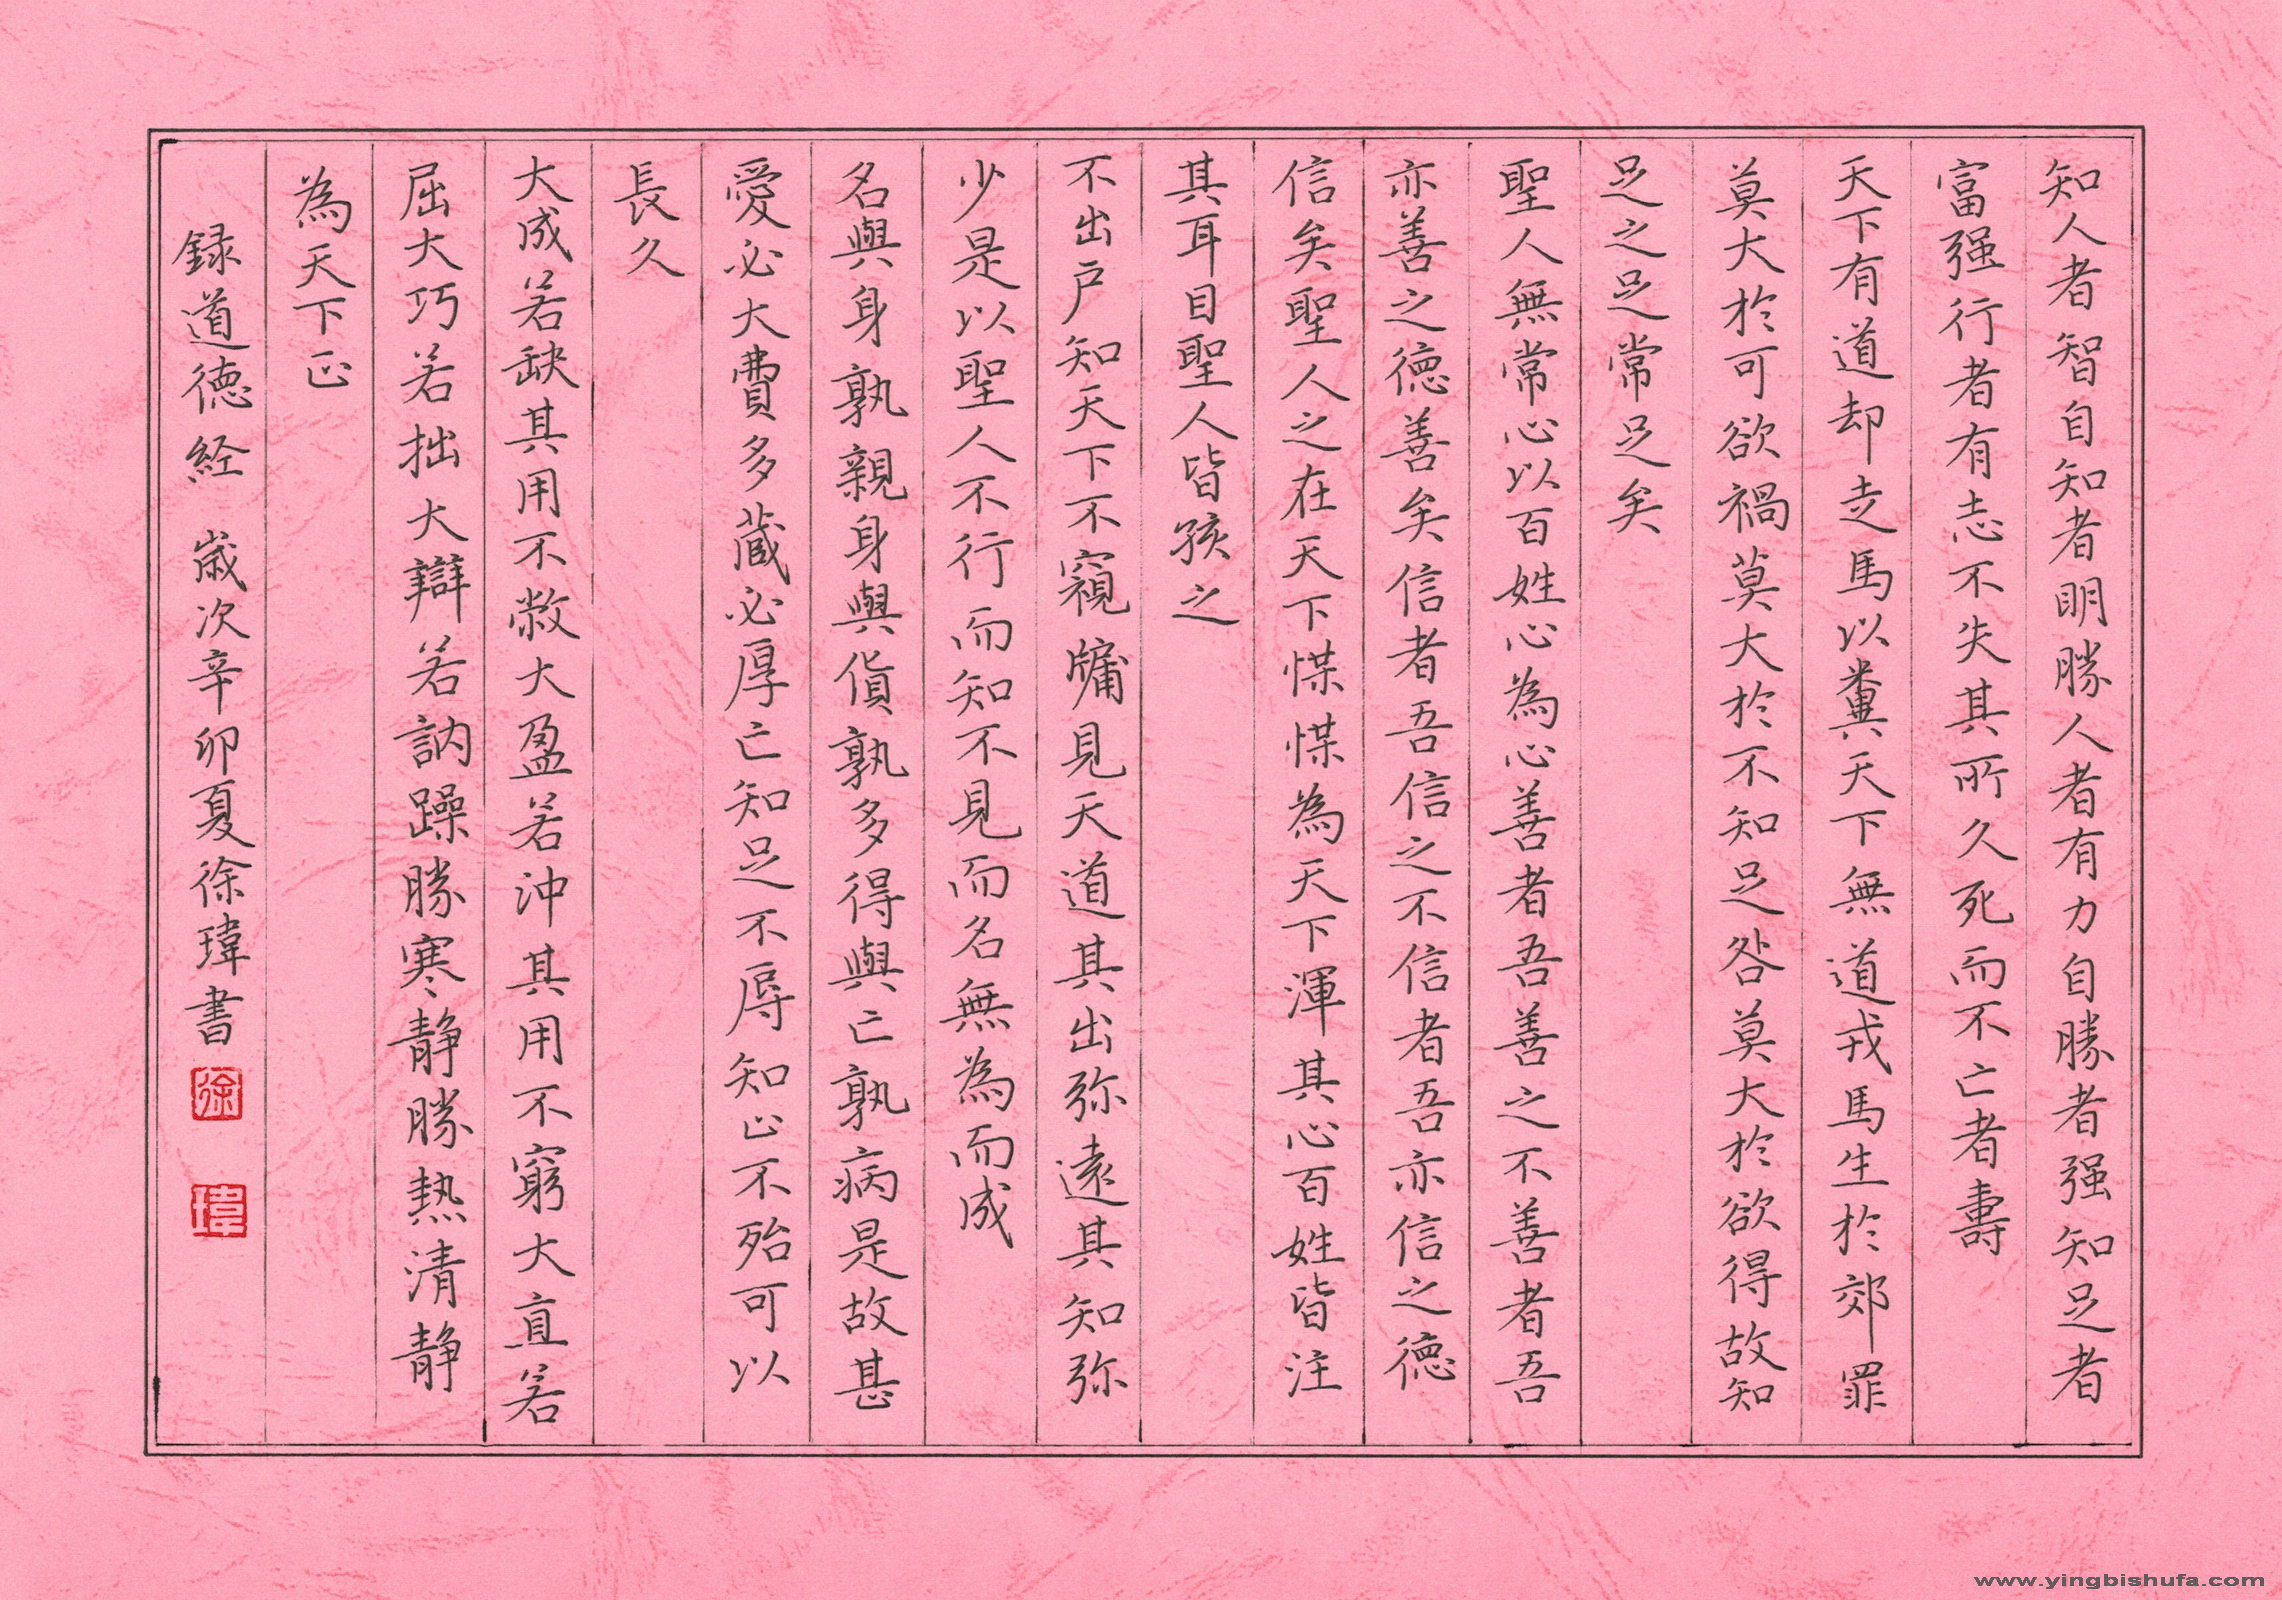 知人者智自知者明勝人者有力自勝者强知足者
富强行者有志不失其所久死而不亡者壽
天下有道却走馬以糞天下無道戎馬生於郊罪
莫大於可欲禍莫大於不知足咎莫大於欲得故知
足之足常足矣
聖人無常心以百姓心為心善者吾善之不善者吾
亦善之德善矣信者吾信之不信者吾亦信之德
信矣聖人之在天下惵惵為天下渾其心百姓皆注
其耳目聖人皆孩之
不出户知天下不窺牖見天道其出弥遠其知弥
少是以聖人不行而知不見而名無為而成
名與身孰親身與貨孰多得與亡孰病是故甚
愛必大費多蔵必厚亡知足不辱知止不殆可以
長久
大成若缺其用不敝大盈若沖其用不窮大直若
屈大巧若拙大辯若訥躁勝寒静勝熱清静
為天下正
録道德経 歳次辛卯夏徐瑋書
徐
瑋
www.yingbishufa.com